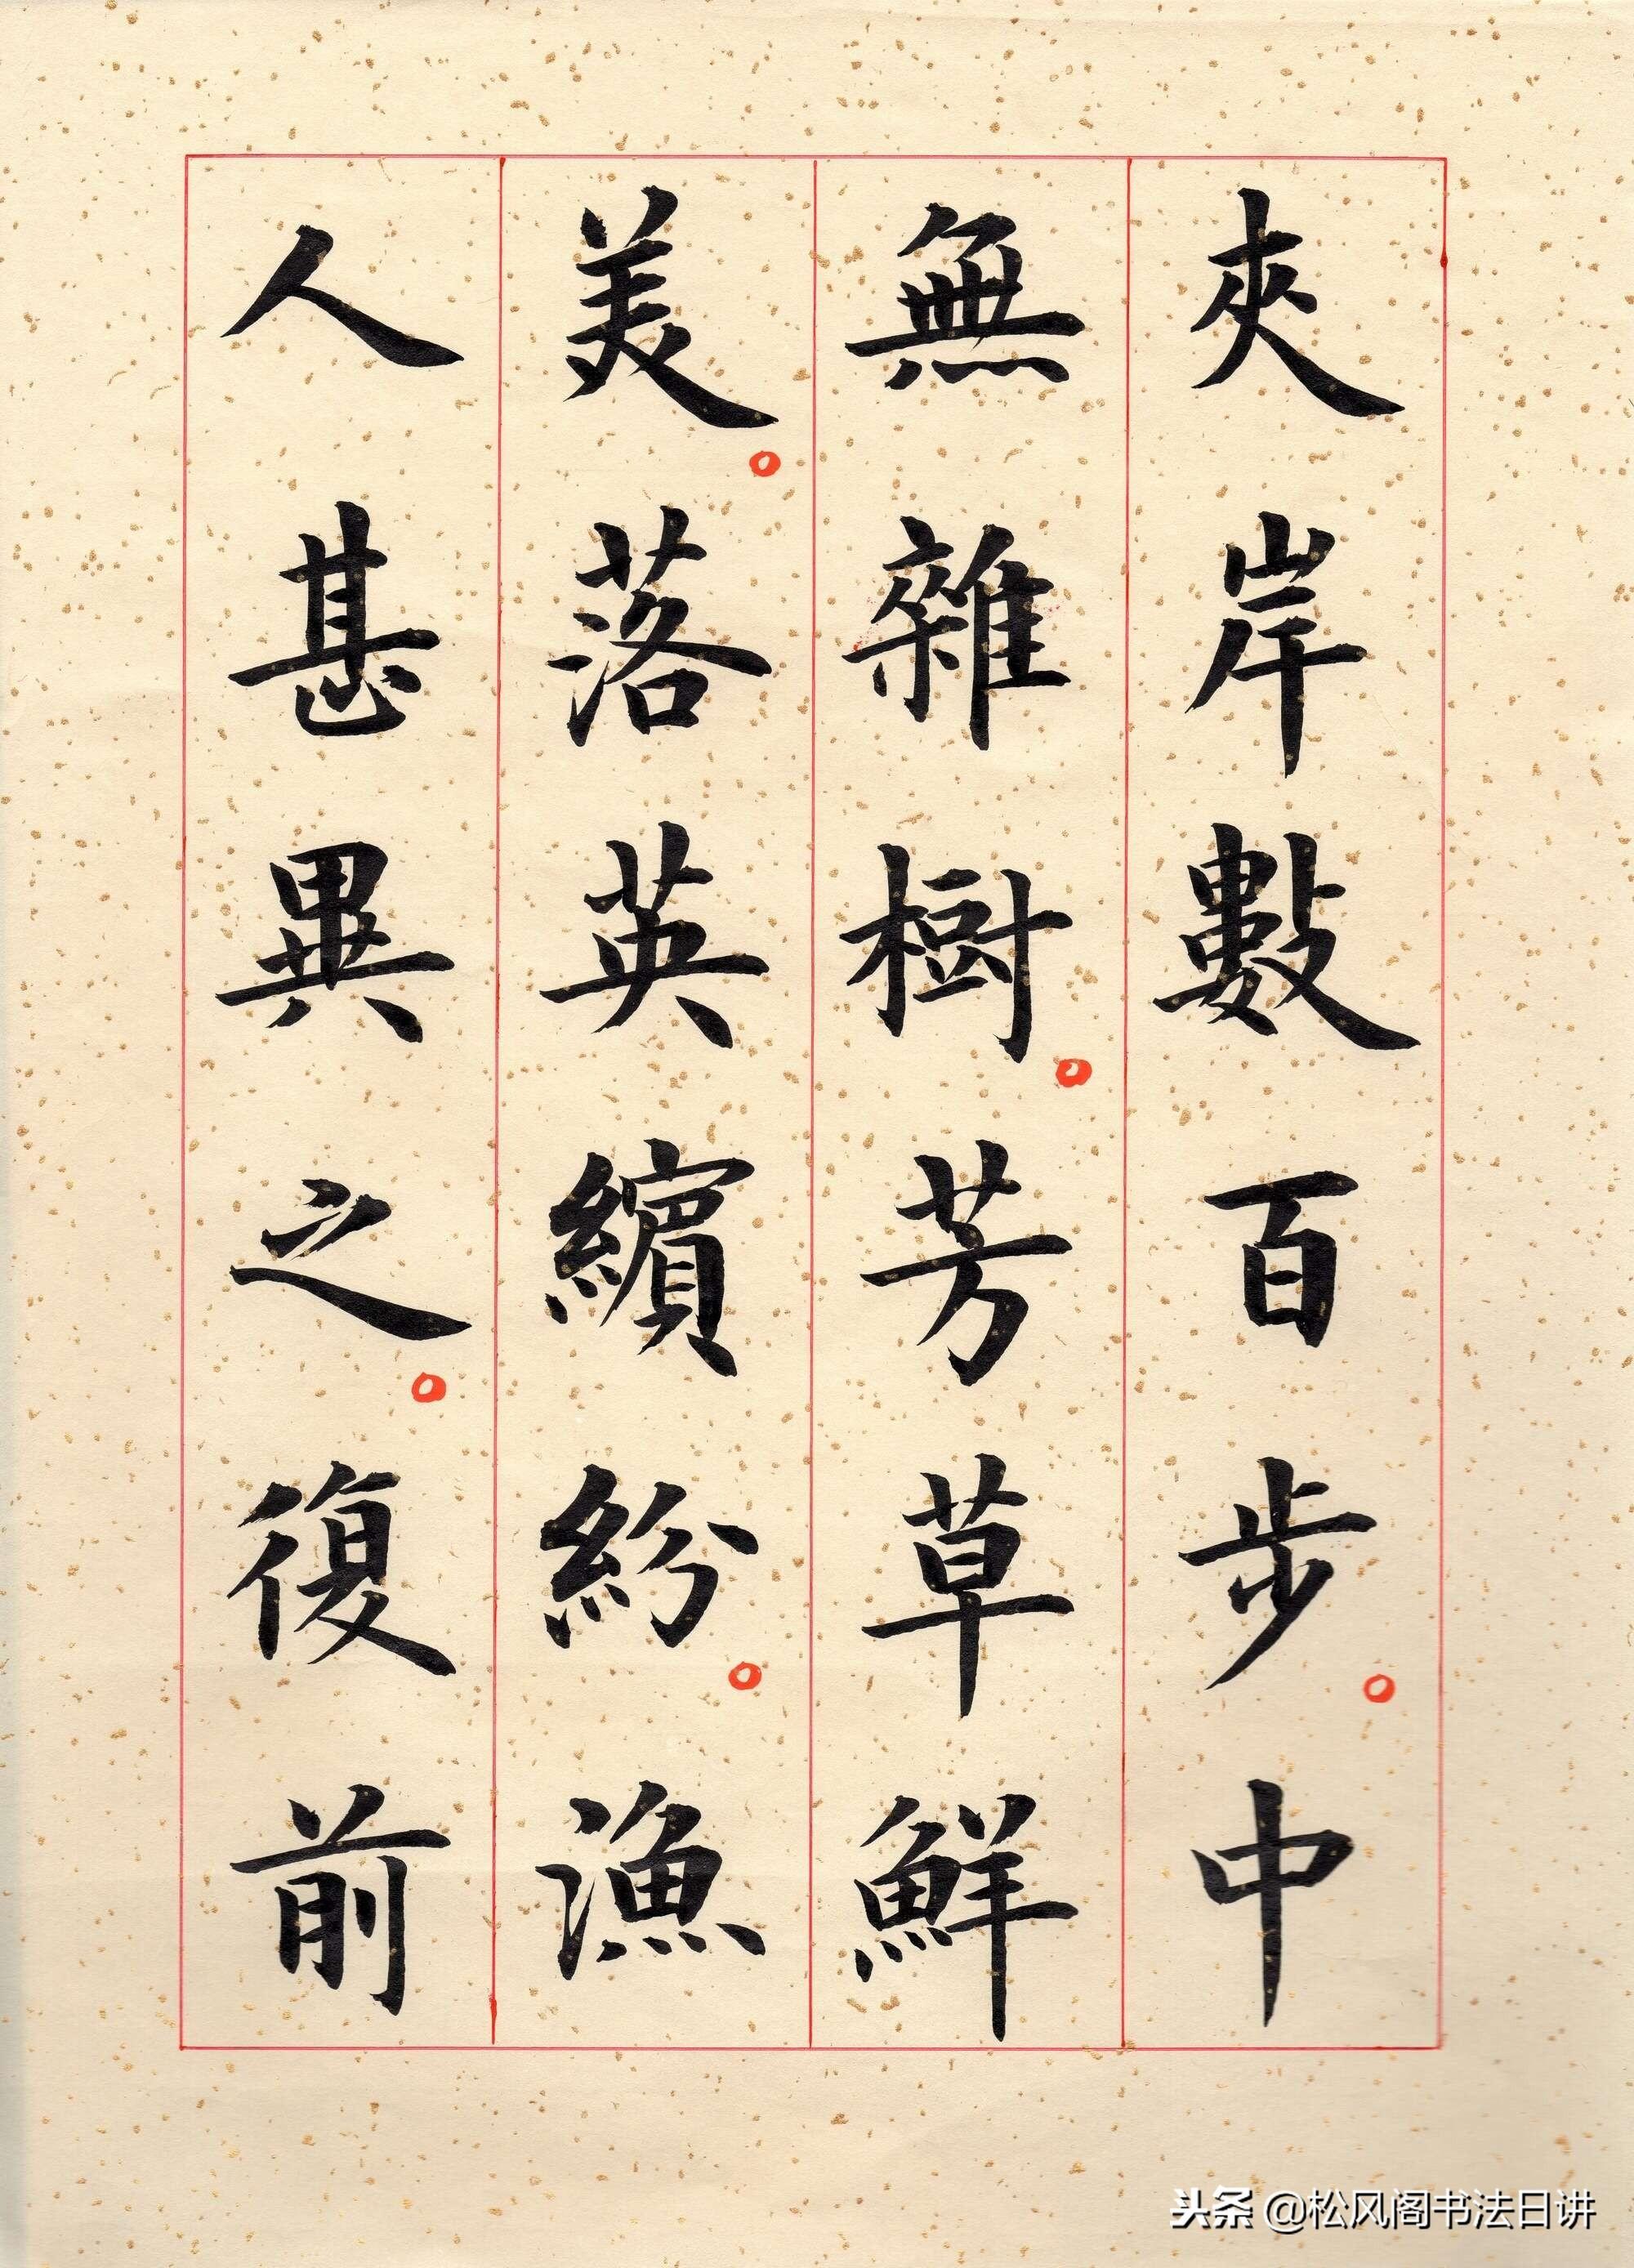 夾岸數百步。中
無雜樹。芳草鮮
美。落英繽紛。漁
人甚異之。復前
头条 @松风阁书法日讲